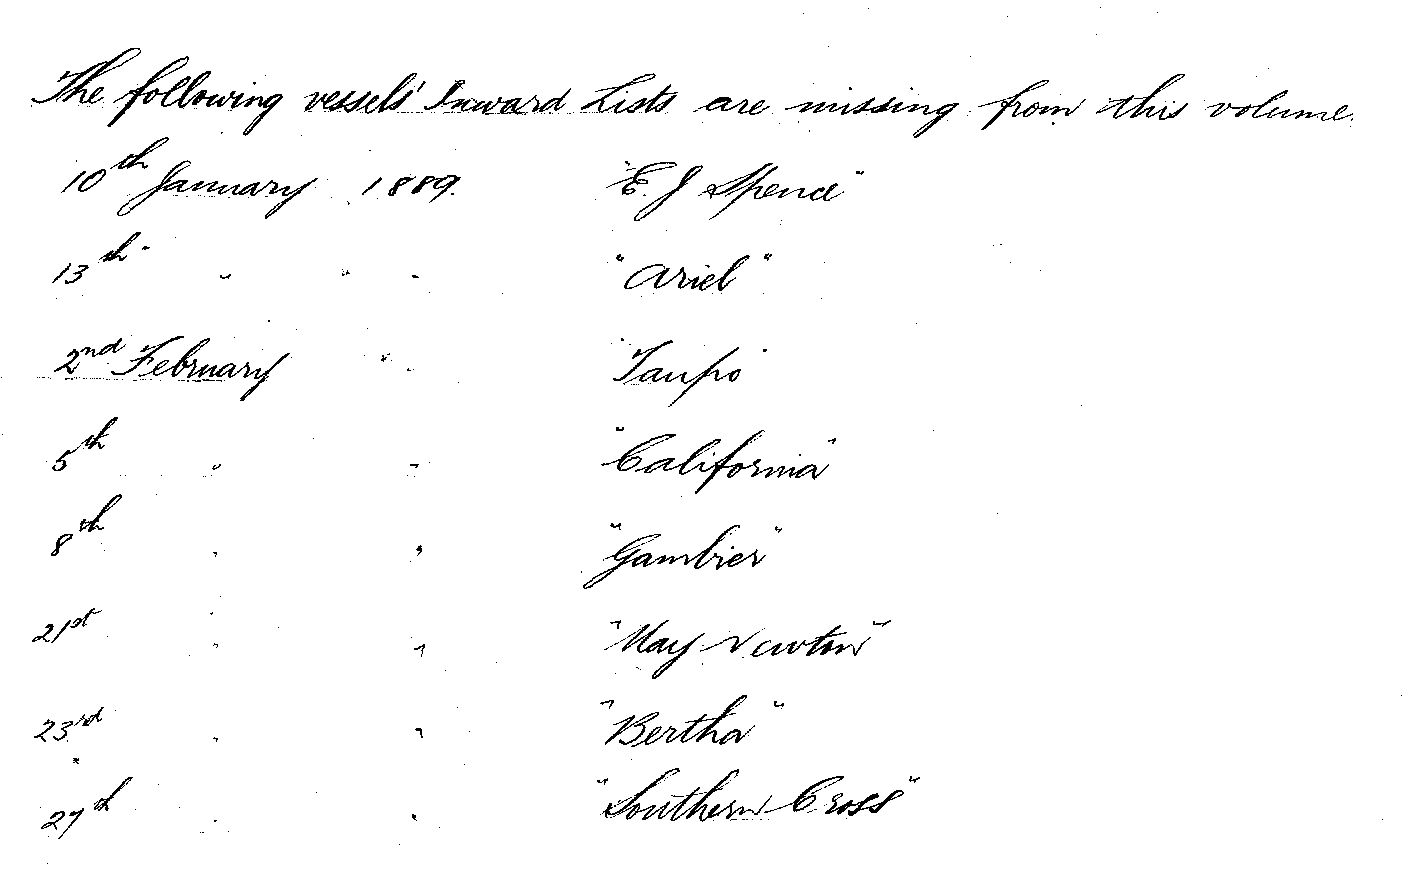 The following vessels' Inward Lists are missing from this volume.
10th January 1889. "E. J Spence"
13th " " " "Ariel"
2nd February " "Taupo"
5th " " "California"
8th " " "Gambier"
21st " " "May Newton"
23rd " " "Bertha"
27th " " "Southern Cross"